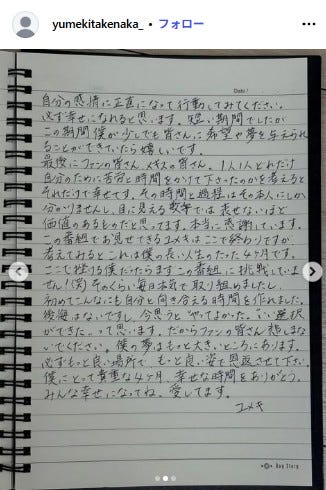 yumekitakenaka_ • フォロー
Date /
自分の感情に正直になって行動してみてください。
必ず幸せになれると思います。短い期間でしたが
この期間僕が少しでも皆さんに希望や夢を与えられ
ることができていたら嬉しいです。
最後にファンの皆さん、メキスの皆さん、1人1人どれだけ
自分のために苦労と時間をかけて下さったのかを考えると
それだけで幸せです。その時間と過程はその本人にしか
分かりませんし、目に見える数字では表せないほど
価値のあるものだと思ってます。本当に感謝しています。
この番組でお見せできるユメキはここで終わりですが
考えてみるとこれは僕の長い人生のたった4ヶ月です。
ここで挫ける僕だったらまずこの番組に挑戦していま
せん!(笑)そのくらい毎日本気で取り組めましたし、
初めてこんなにも自分と向き合える時間を作れました。
後悔はないですし、今思うと"やってよかった。""いい選択
ができた。"って思います。だからファンの皆さん悲しまな
いでください。僕の夢はもっと大きいところにあります。
必ずもっと良い場所で、もっと良い姿で恩返させて下さい。
僕にとって貴重な4ヶ月、幸せな時間をありがとう。
みんな幸せになってね。愛してます。
ユメキ
Day Story